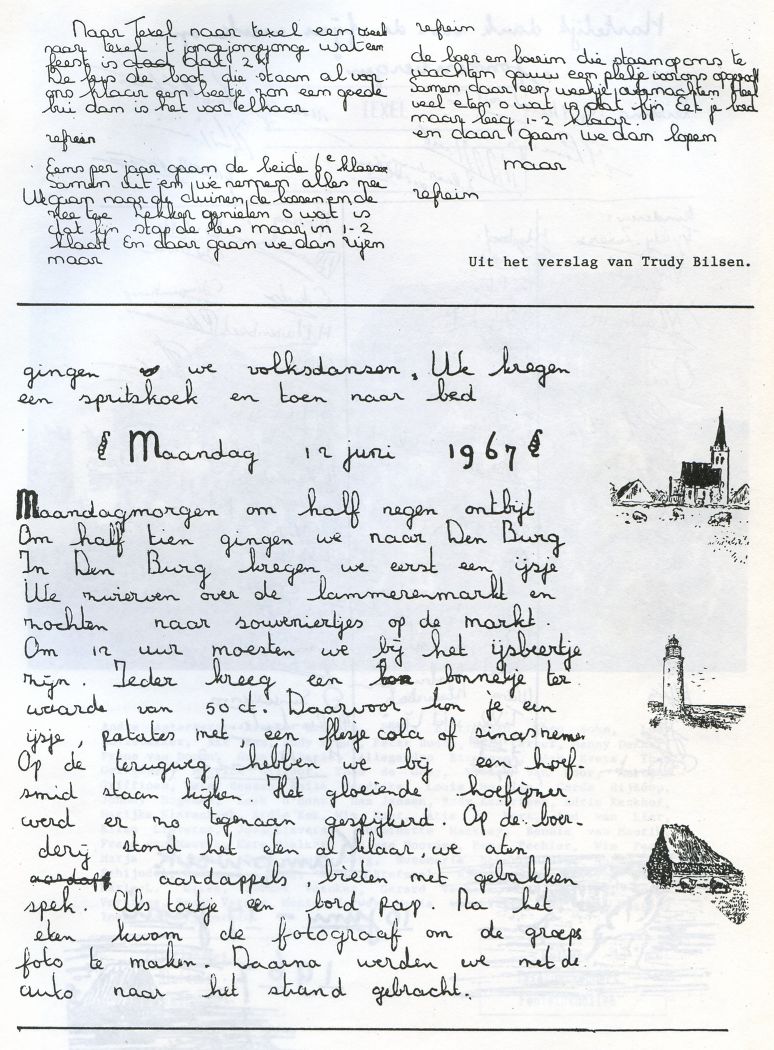 Naar Texel naar texel een week
naar texel 't jongejongejonge wat een
feest is dat dat 2x
De bus de boot die staan al voor
ons klaar een beetje zon een goede
bui dan is het voor elkaar
refrein
Eens per jaar gaan de beide 6e klassen
samen uit en we nemen alles mee
We gaan naar de duinen de bossen en de
zee Lekker genieten o wat is
dat fijn stap de bus maar in 1-2
klaar En daar gaan we dan rijen
maar
refrein
de boer en boerin die staan ons op te
wachten gauw een plekje voor ons opgezocht
samen daar een weekje overnachten Heel
veel eten o wat is dat fijn Eet je bord
maar leeg 1-2 klaar
en daar gaan we dan lopen
maar
refrein
Uit het verslag van Trudy Bilsen.
gingen we volksdansen. We kregen
een spritskoek en toen naar bed
Maandag 12 juni 1967
Maandagmorgen om half negen ontbijt
Om half tien gingen we naar Den Burg
In Den Burg kregen we eerst een ijsje
We zwierven over de lammerenmarkt en
zochten naar souveniertjes op de markt.
Om 12 uur moesten we bij het ijsbeertje
zijn. Ieder kreeg een bonnetje ter
waarde van 50 ct. Daarvoor kon je een
ijsje, patates met, een flesje cola of sinas nemen
Op de terugweg hebben we bij een hoef-
smid staan kijken Het gloeiende hoefijzer
werd er zo tegenaan gespijkerd. Op de boer-
derij stond het eten al klaar we aten
aardappels, bieten met gebakken
spek. Als toetje een bord pap. Na het
eten kwam de fotograaf om de groeps
foto te maken. Daarna werden we met de
auto naar het strand gebracht.